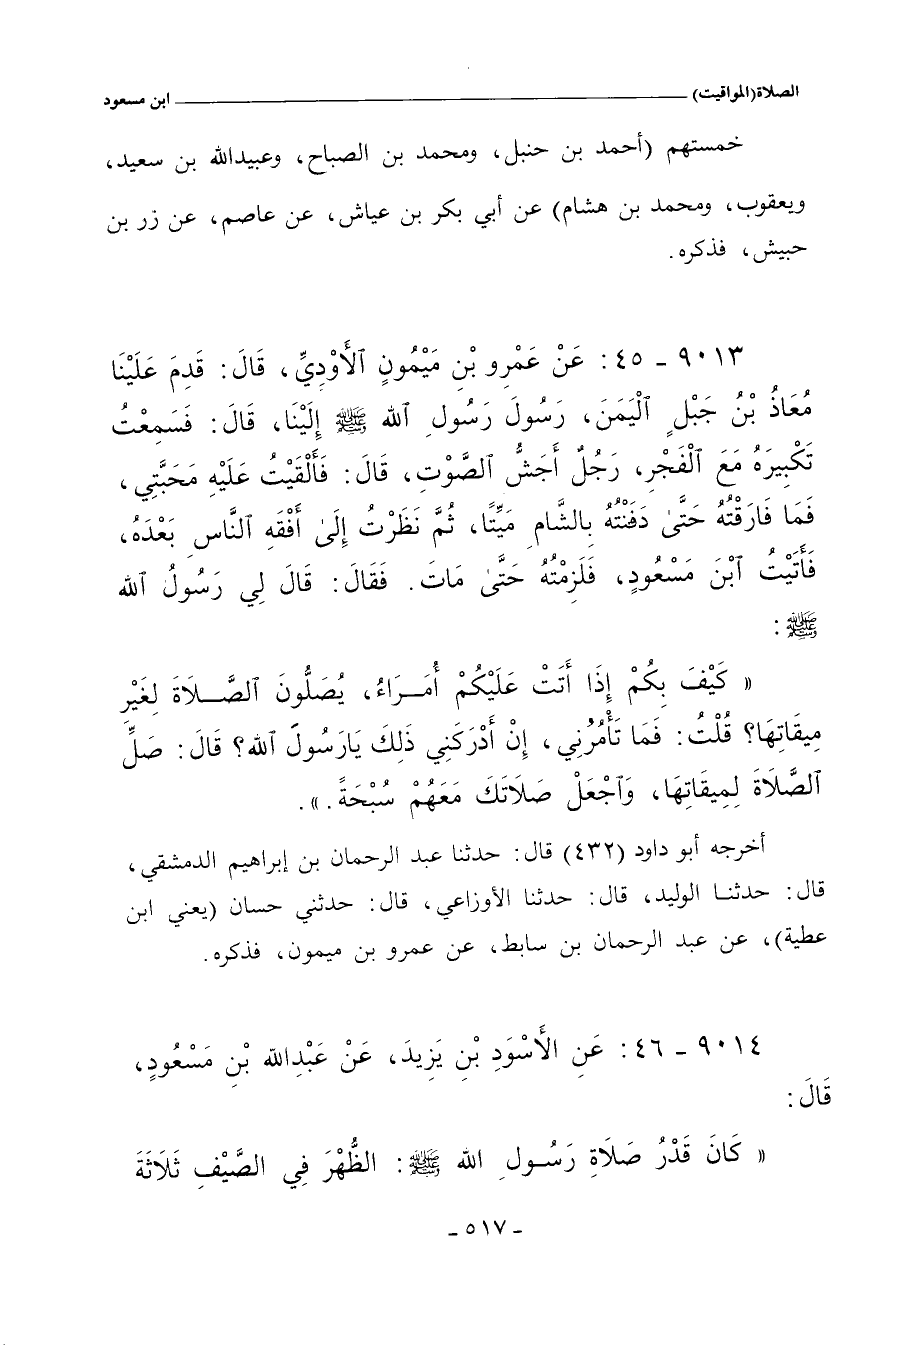 الصلاة(المواقيت) ابن مسعود
خمستهم (أحمد بن حنبل، ومحمد بن الصباح، وعبيدالله بن سعيد،
ويعقوب، ومحمد بن هشام) عن أبي بكر بن عياش، عن عاصم، عن زر بن
حبيش، فذكره.
٩٠١٣ ـ ٤٥ : عَنْ عَمْرِو بْنِ مَيْمُونٍ ٱلْأَوْدِيِّ، قَالَ: قَدِمَ عَلَيْنَا
مُعَاذُ بْنُ جَبَلٍ ٱلْيَمَنَ، رَسُولَ رَسُولِ ٱلله ﷺ إِلَيْنَا، قَالَ: فَسَمِعْتُ
تَكْبِيرَهُ مَعَ ٱلْفَجْرِ، رَجُلٌ أَجَشُّ ٱلصَّوْتِ، قَالَ: فَأَلْقَيْتُ عَلَيْهِ مَحَبَّتِي،
فَمَا فَارَقْتُهُ حَتَّىٰ دَفَنْتُهُ بِالشَّامِ مَيِّتًا، ثُمَّ نَظَرْتُ إِلَىٰ أَفْقَهِ ٱلنَّاسِ بَعْدَهُ،
فَأَتَيْتُ ٱبْنَ مَسْعُودٍ، فَلَزِمْتُهُ حَتَّىٰ مَاتَ. فَقَالَ: قَالَ لِي رَسُولُ ٱلله
ﷺ :
« كَيْفَ بِكُمْ إِذَا أَتَتْ عَلَيْكُمْ أُمَرَاءُ، يُصَلُّونَ ٱلصَّلَاةَ لِغَيْرِ
مِيقَاتِهَا؟ قُلْتُ: فَمَا تَأْمُرُنِي، إِنْ أَدْرَكَنِي ذَلِكَ يَارَسُولَ ٱلله؟ قَالَ: صَلِّ
ٱلصَّلَاةَ لِمِيقَاتِهَا، وَٱجْعَلْ صَلَاتَكَ مَعَهُمْ سُبْحَةً. ».
أخرجه أبو داود (٤٣٢) قال: حدثنا عبد الرحمان بن إبراهيم الدمشقي،
قال: حدثنا الوليد، قال: حدثنا الأوزاعي، قال: حدثني حسان (يعني ابن
عطية)، عن عبد الرحمان بن سابط، عن عمرو بن ميمون، فذكره.
٩٠١٤ ـ ٤٦ : عَنِ الْأَسْوَدِ بْنِ يَزِيدَ، عَنْ عَبْدِالله بْنِ مَسْعُودٍ،
قَالَ:
« كَانَ قَدْرُ صَلَاةِ رَسُولِ الله ﷺ : الظُّهْرَ فِي الصَّيْفِ ثَلَاثَةَ
ـ ٥١٧ ـ